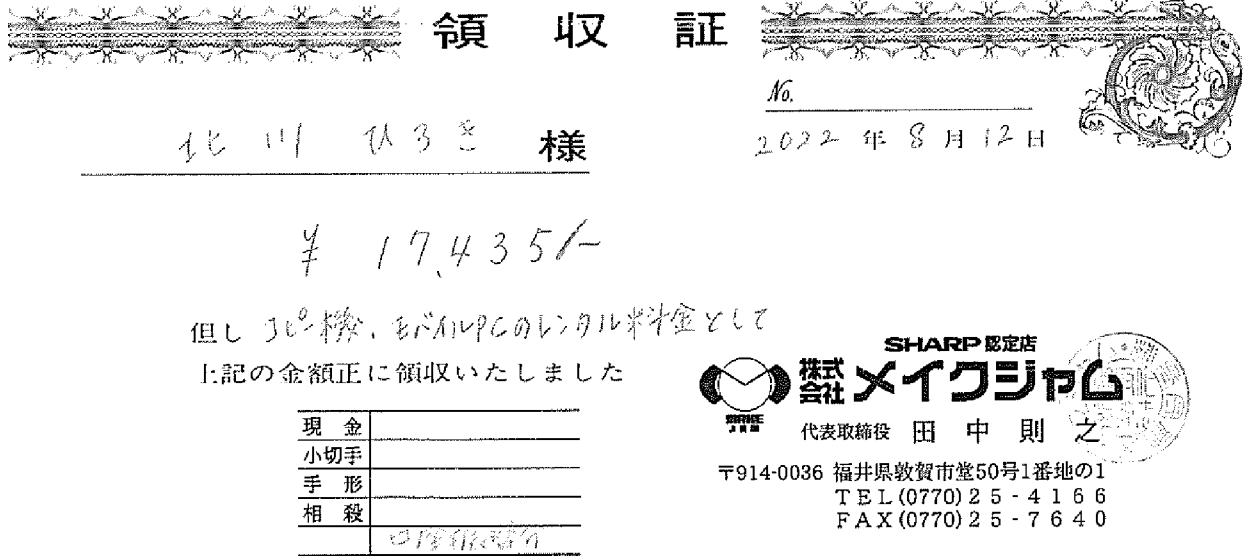 領収証
No.
2022年8月12日
北川 ひろき 様
¥ 17,435/-
但し コピー機、モバイルPCのレンタル料金として
上記の金額正に領収いたしました
現金
小切手
手形
相殺
SHARP認定店
株式会社メイクジャム
代表取締役 田中則之
〒914-0036 福井県敦賀市堂50号1番地の1
TEL(0770)25-4166
FAX(0770)25-7640